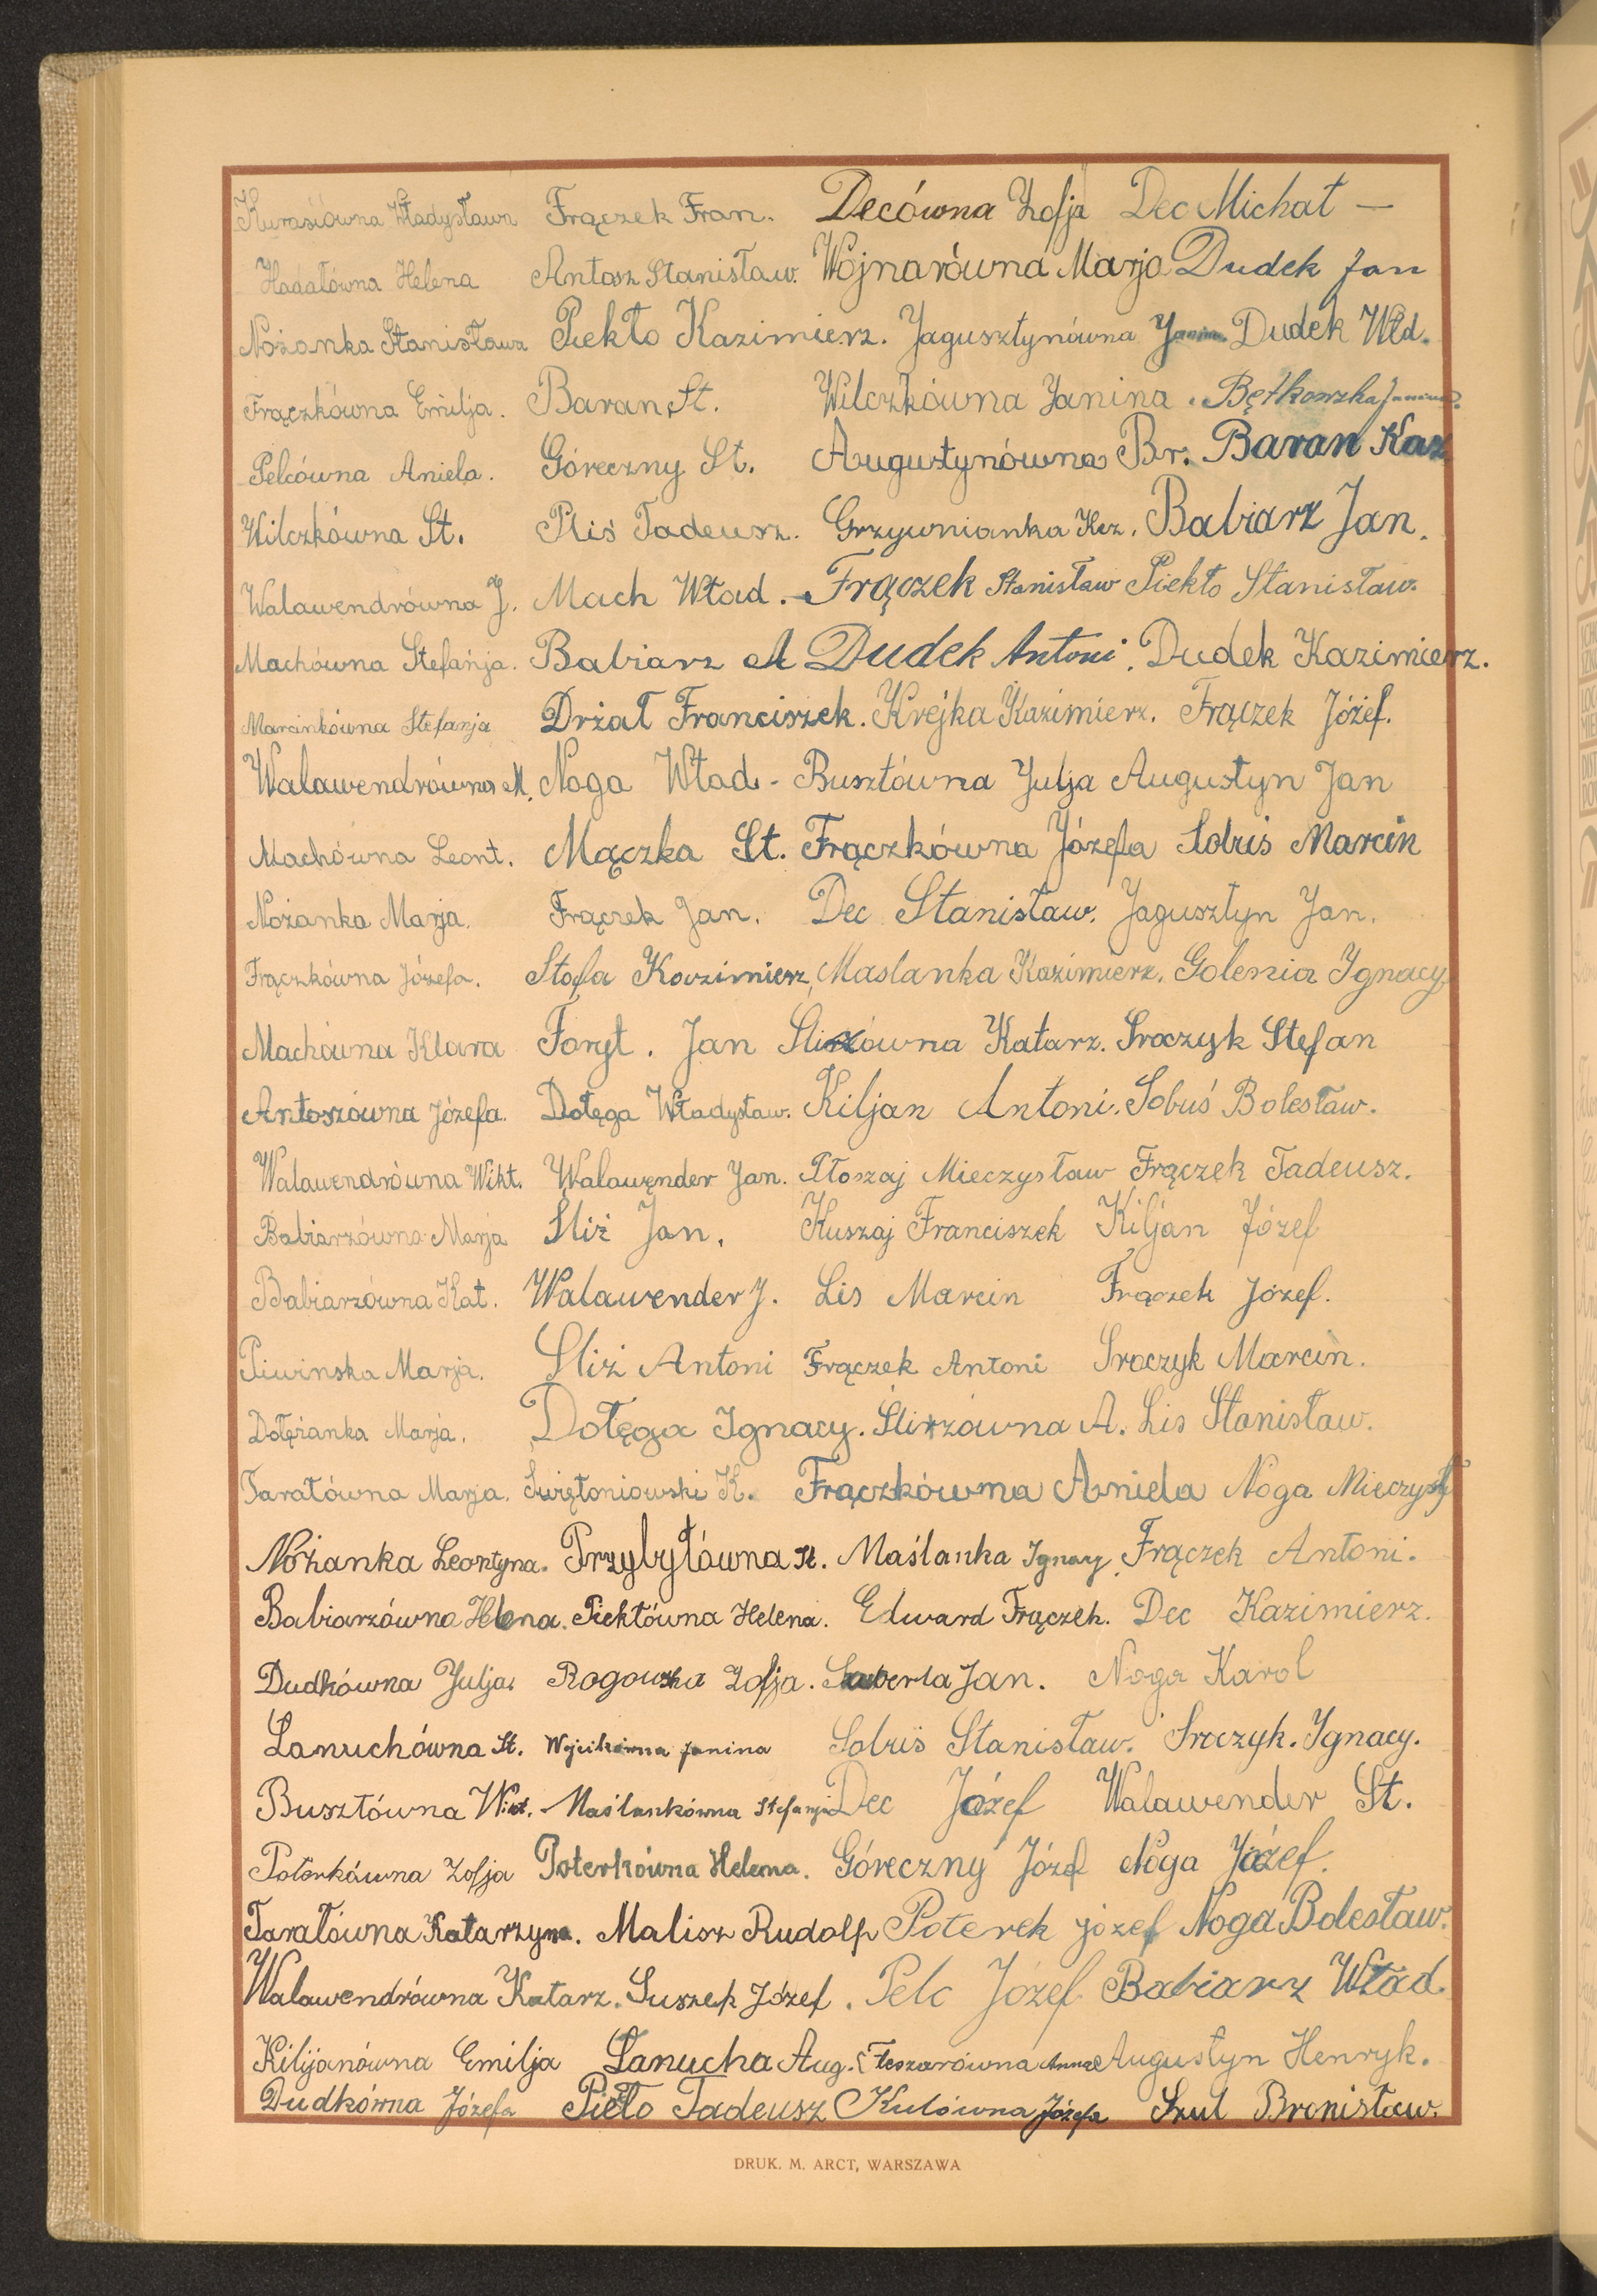 Kurasiówna Władysława Frączek Fran. Decówna Zofja Dec Michał —
Hadałówna Helena Antosz Stanisław. Wojnarówna Marja Dudek Jan
Nożanka Stanisława Piekło Kazimierz. Jagusztynówna Janina Dudek Wld.
Frączkówna Emilja. Baran St. Wilczkówna Janina. Bętkowska Janina.
Pelcówna Aniela. Góreczny St. Augustynówna Br. Baran Kaz
Wilczkówna St. Pliś Tadeusz. Grzywnianka Kaz. Babiarz Jan.
Walawendrówna J. Mach Wład. Frączek Stanisław Piekło Stanisław.
Machówna Stefanja. Babiarz A Dudek Antoni. Dudek Kazimierz.
Marcinkówna Stefanja Drżał Franciszek. Krejka Kazimierz. Frączek Józef.
Walawendrówna M. Noga Wład. Busztówna Julja Augustyn Jan
Machówna Leont. Mączka St. Frączkówna Józefa Sobuś Marcin
Nożanka Marja. Frączek Jan. Dec Stanisław. Jagusztyn Jan.
Frączkówna Józefa. Stofa Kazimierz, Maslanka Kazimierz. Golenia Ignacy.
Machówna Klara Foryt. Jan Śliżówna Katarz. Sroczyk Stefan
Antoszówna Józefa. Dołęga Władysław. Kiljan Antoni. Sobuś Bolesław.
Walawendrówna Wikt. Walawender Jan. Płoszaj Mieczysław Frączek Tadeusz.
Babiarzówna Marja Śliż Jan. Kuszaj Franciszek Kiljan Józef
Babiarzówna Kat. Walawender J. Lis Marcin Frączek Józef.
Piwinska Marja. Śliż Antoni Frączek Antoni Sroczyk Marcin.
Dołężanka Marja. Dołęga Ignacy. Śliżzówna A. Lis Stanisław.
Tarałówna Marja. Świętoniowski K. Frączkówna Aniela Noga Mieczysł
Nożanka Leontyna. Przybyłówna St. Maślanka Ignacy Frączek Antoni.
Babiarzówna Helena. Piekłówna Helena. Edward Frączek. Dec Kazimierz.
Dudkówna Julja. Rogowska Zofja. Jan. Noga Karol
Łanuchówna St. Wójcikówna Janina Sobuś Stanisław. Sroczyk. Ignacy.
Busztówna Wikt. Maślankówna Stefanja Dec Józef Walawender St.
Poterkówna Zofja Poterkówna Helena. Góreczny Józef Noga Józef.
Tarałówna Katarzyna. Malisz Rudolf Poterek józef Noga Bolesław.
Walawendrówna Katarz. Suszek Józef. Pelc Józef Babiarz Wład.
Kilijanówna Emilja Łanucha Aug. Fleszarówna Anna Augustyn Henryk.
Dudkówna Józefa Piekło Tadeusz Kulówna Józefa Szul Bronisław.
DRUK. M. ARCT, WARSZAWA